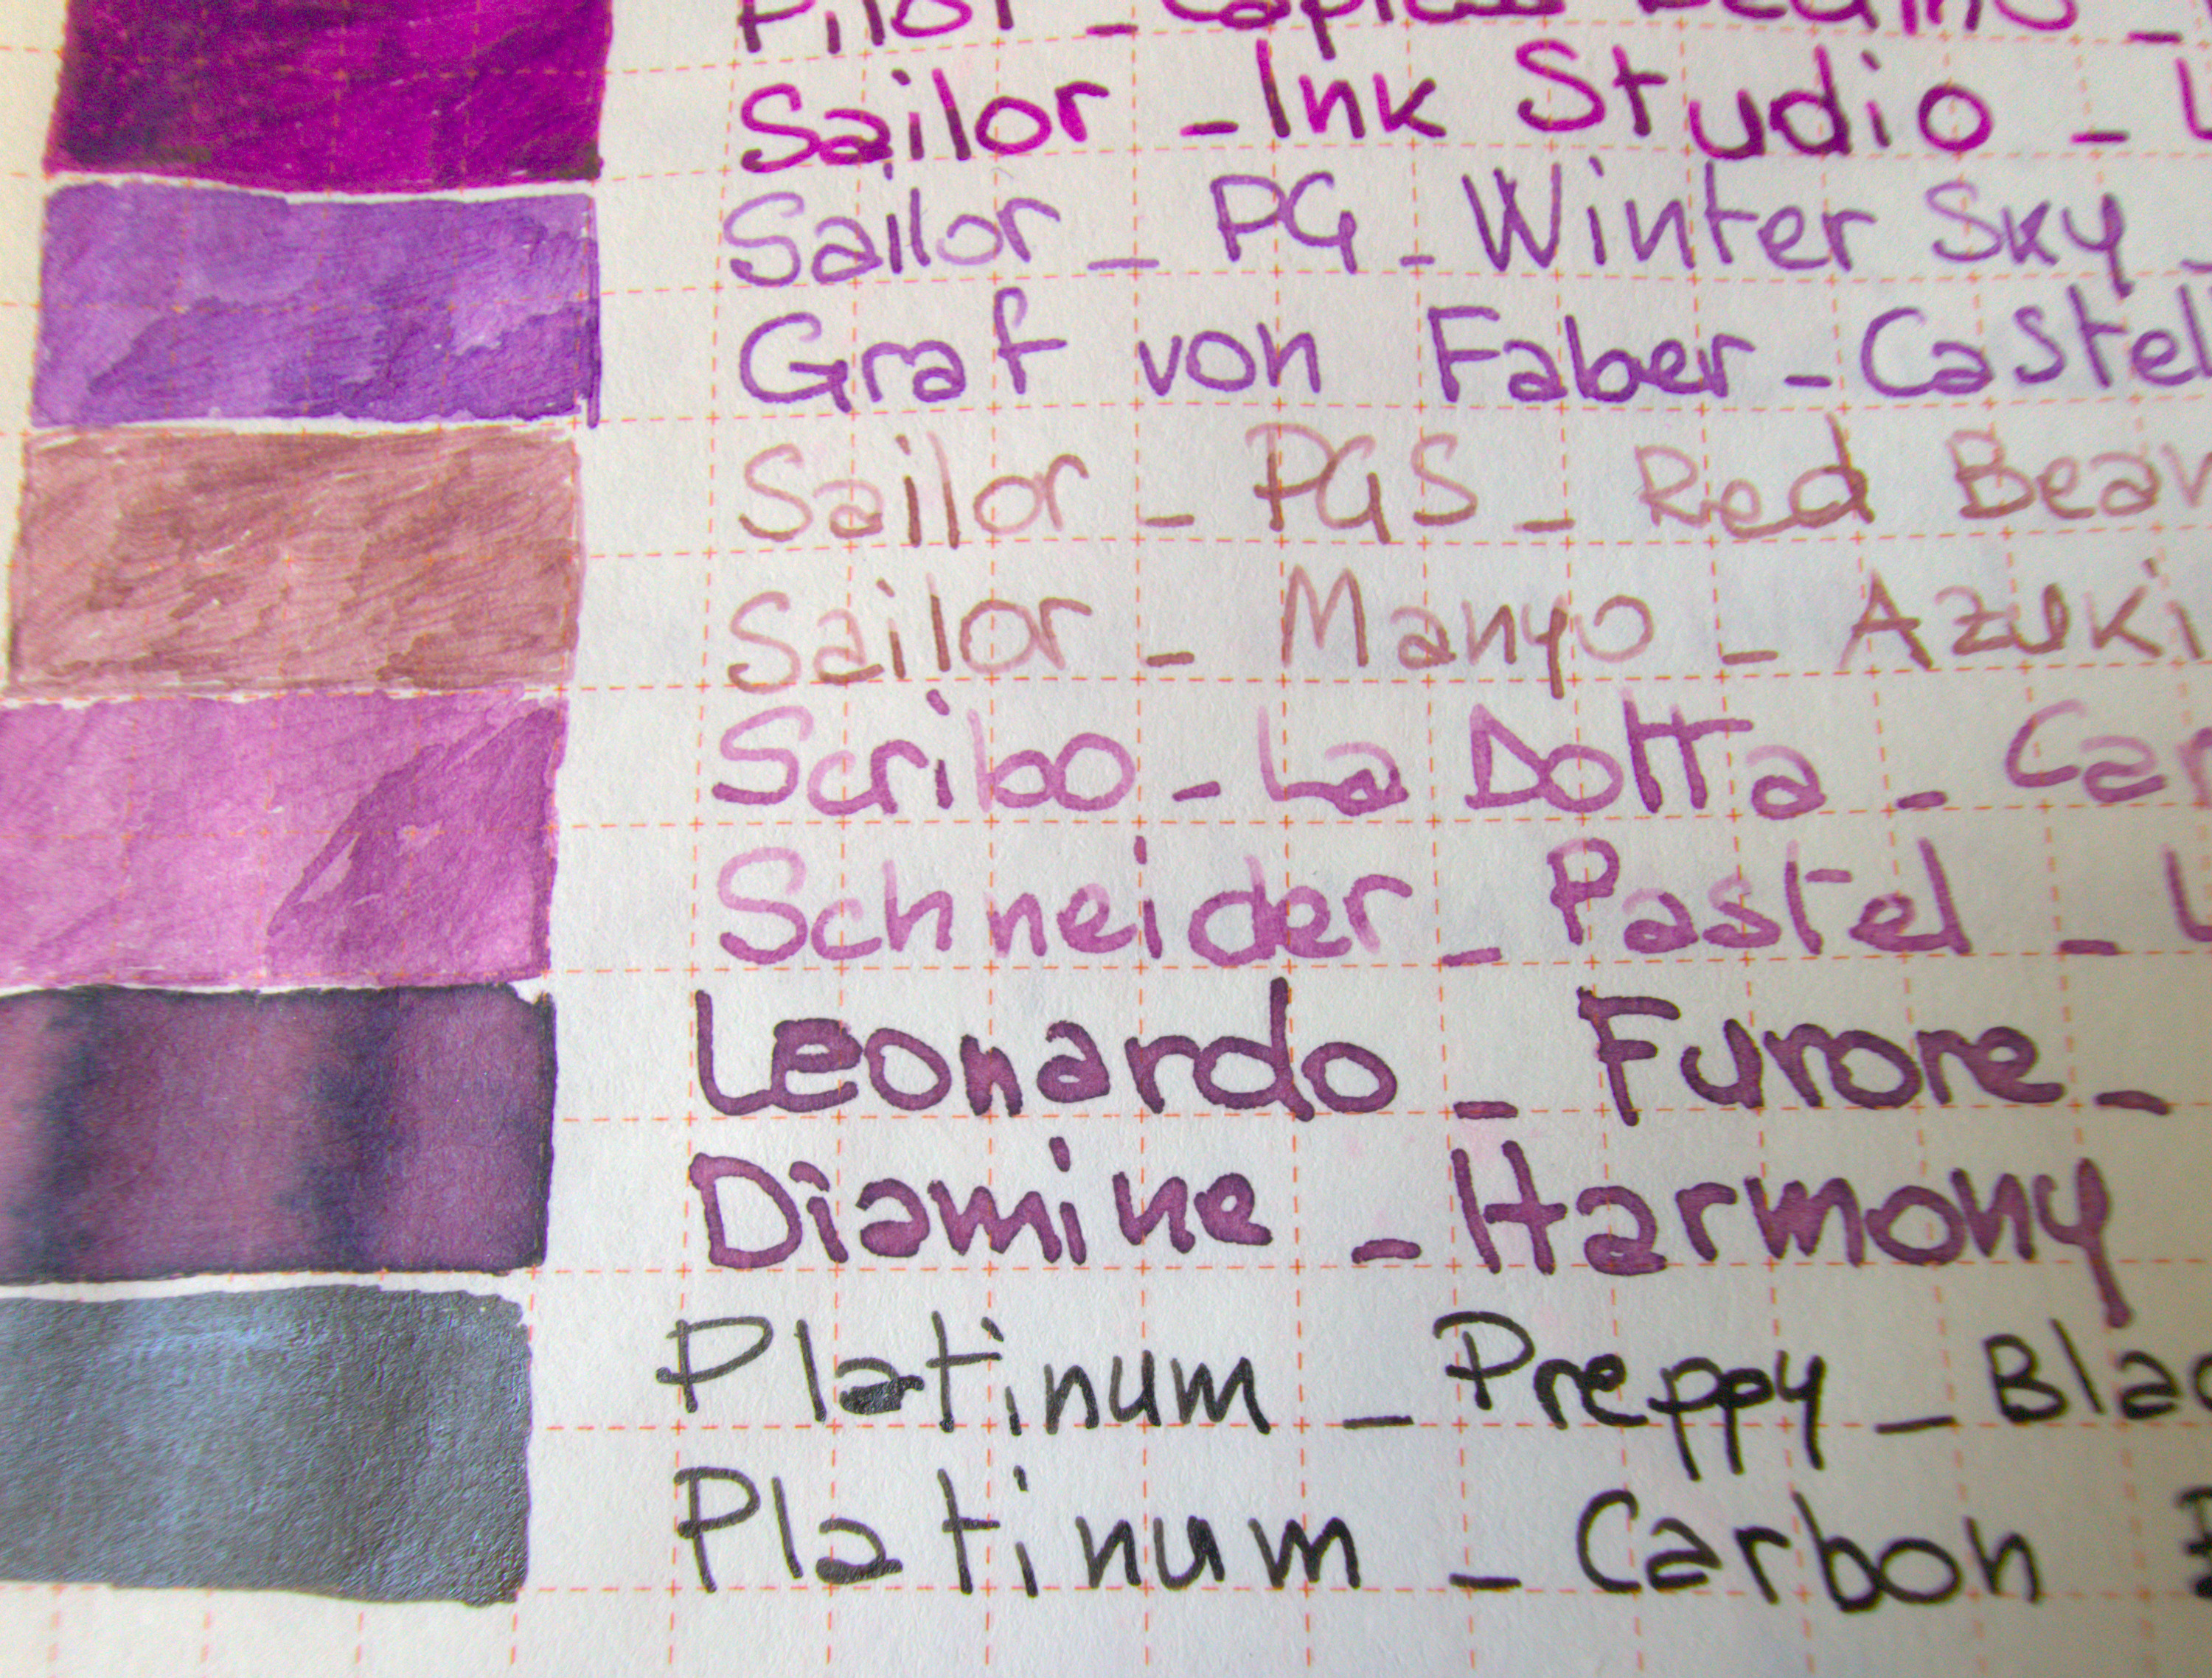 Pilot _
Sailor _ Ink Studio _
Sailor _ PG _ Winter Sky _
Graf von Faber _ Castel
Sailor _ PGS _ Red Bean
Sailor _ Manyo _ Azuki
Scribo _ La Dotta _ Car
Schneider _ Pastel _
Leonardo _ Furore _
Diamine _ Harmony
Platinum _ Preppy _ Blac
Platinum _ Carbon